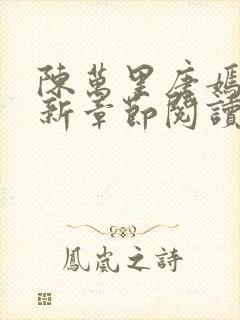 陳萬里唐嫣
新章節閱讀
鳳嵐之詩